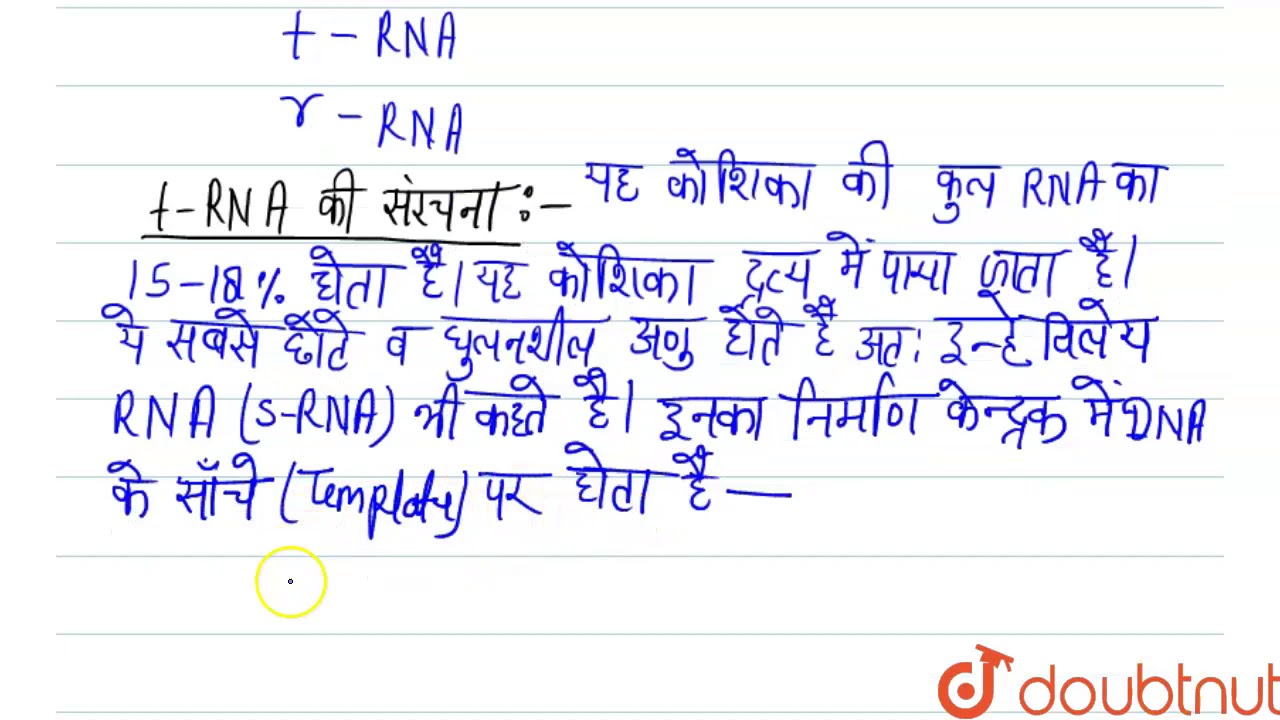 t - RNA
r - RNA
t-RNA की संरचना :- यह कोशिका की कुल RNA का
15-18% होता है। यह कोशिका द्रव्य में पाया जाता है।
ये सबसे छोटे व घुलनशील अणु होते हैं अतः इन्हे विलेय
RNA (S-RNA) भी कहते है। इनका निर्माण केन्द्रक में DNA
के साँचे (Template) पर होता है —
doubtnut